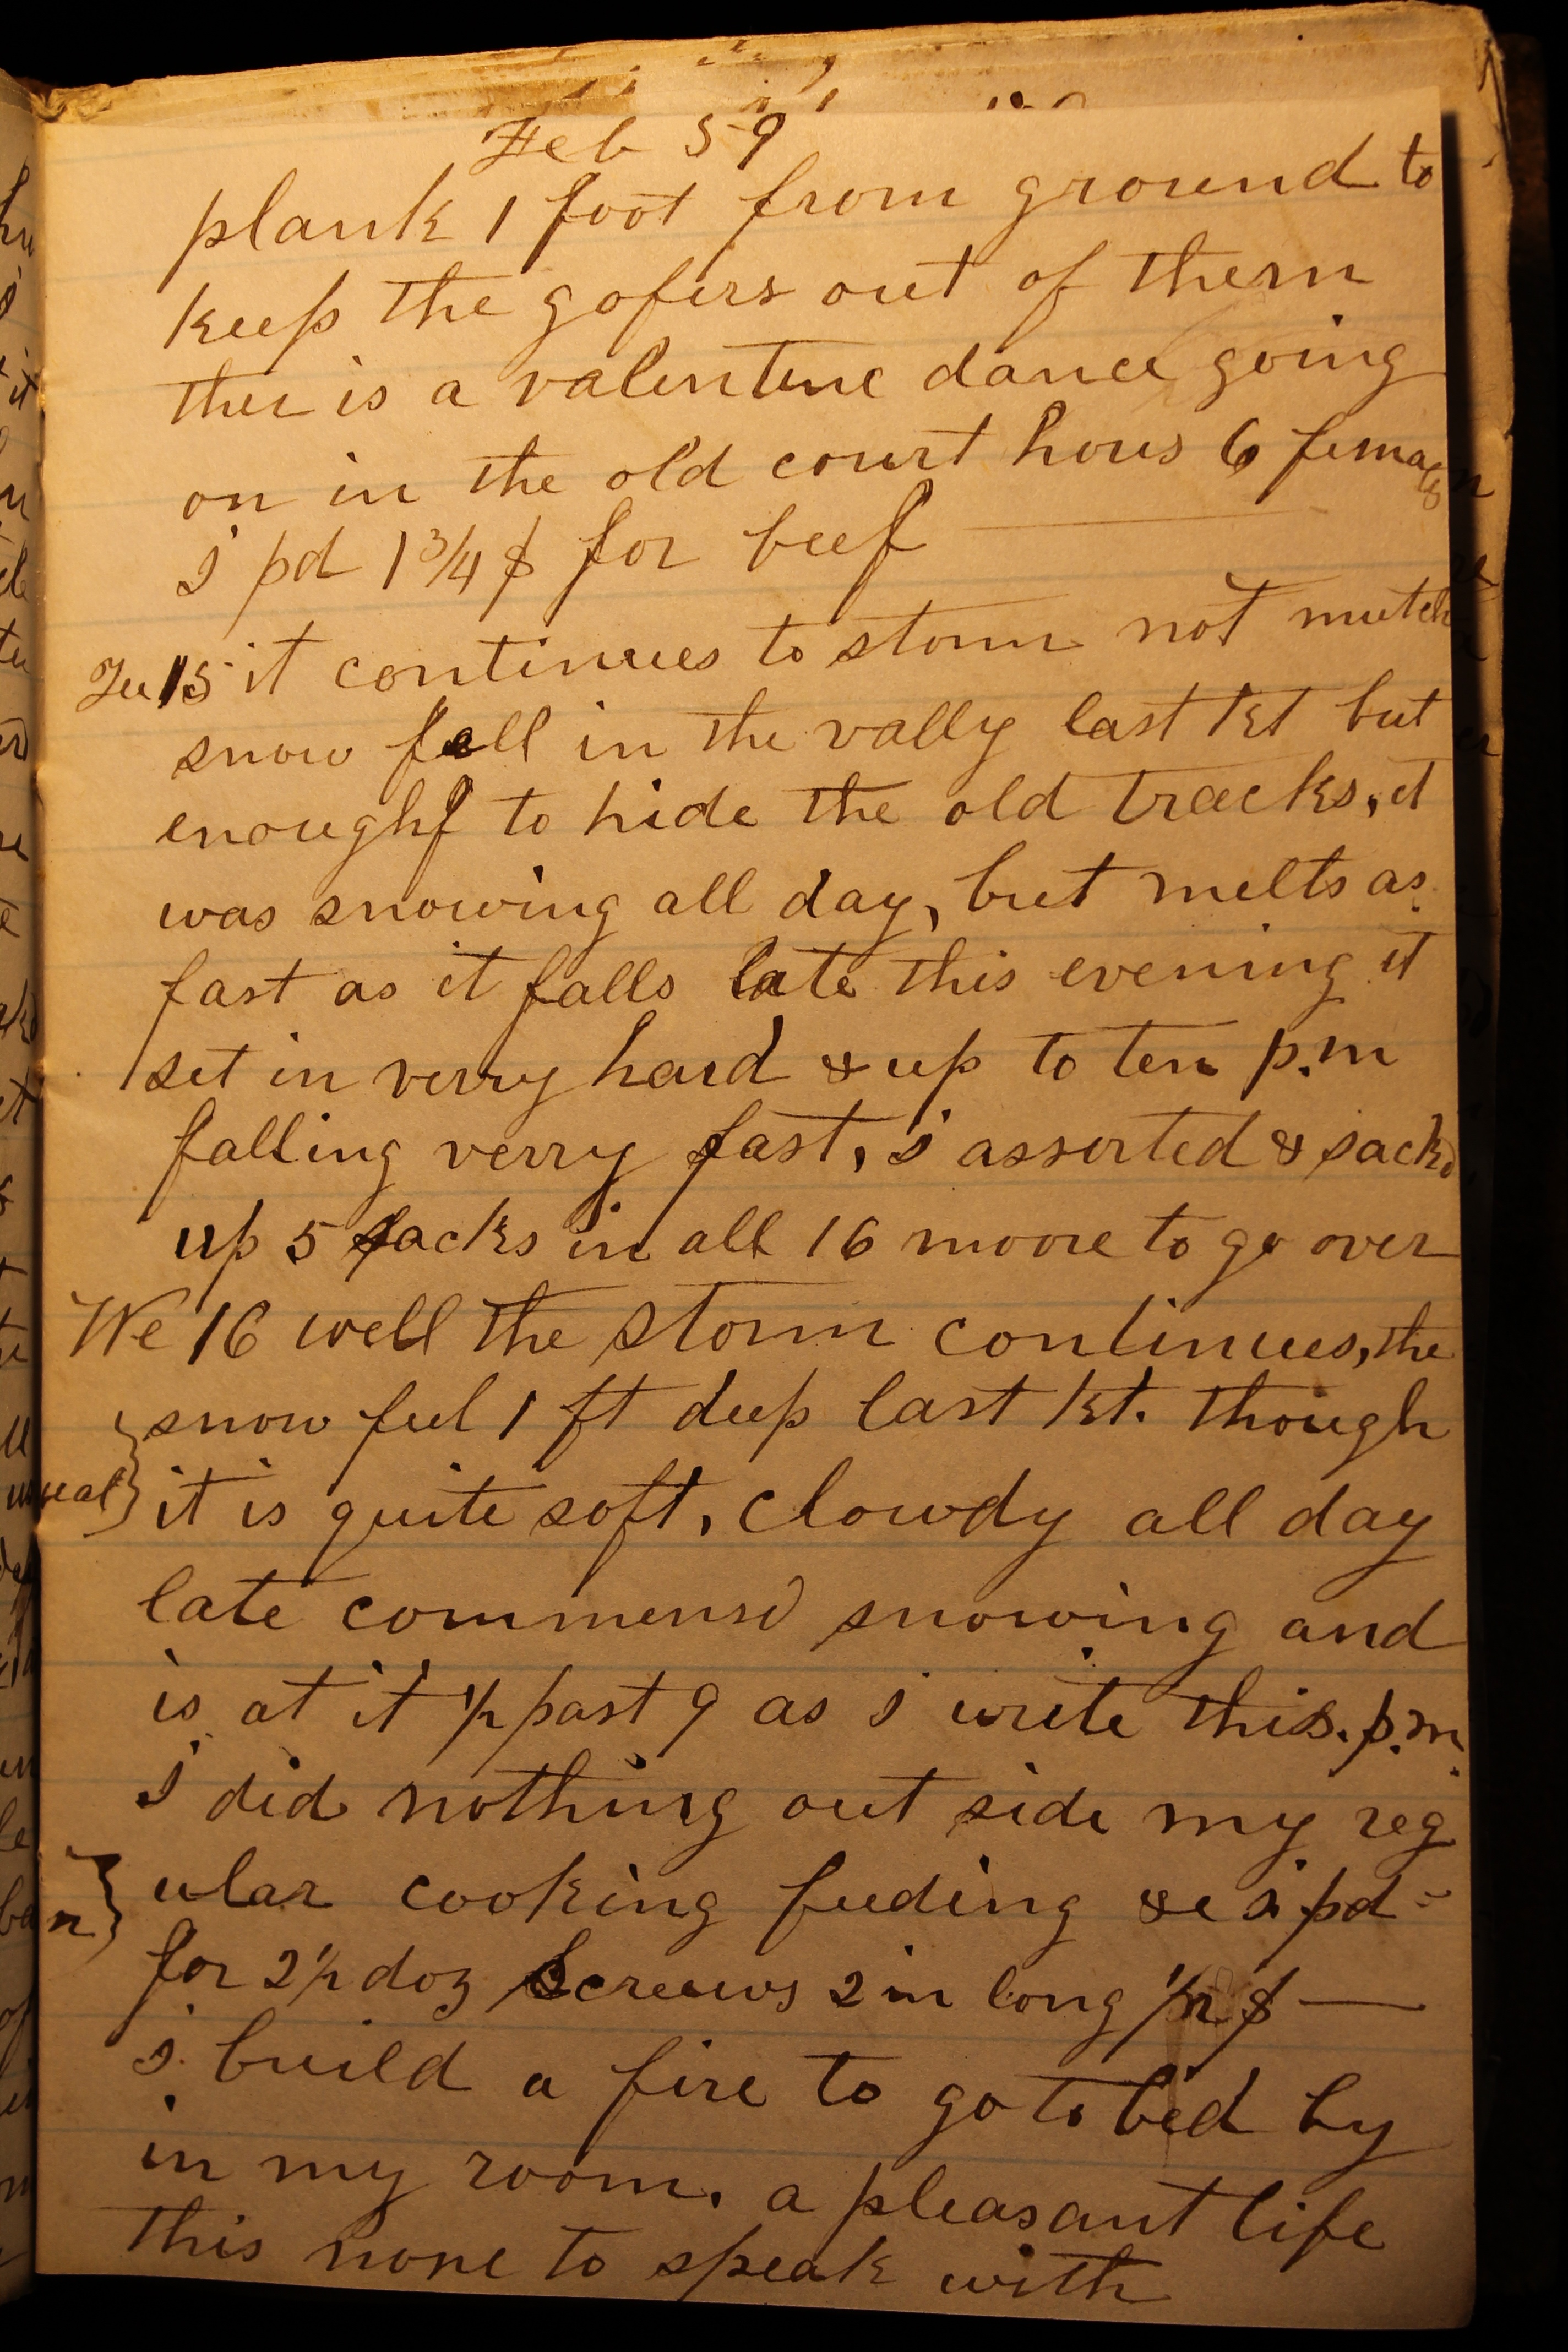 Feb 59
plank 1 foot from ground to
keep the gofers out of them
ther is a valentine dance going
on in the old court hous 6 females
i pd 1 3/4 $ for beef
Tu 15 it continues to storm not mutch
snow fell in the vally last kt but
enoughf to hide the old tracks, it
was snowing all day, but melts as
fast as it falls late this evening it
set in verry hard & up to ten p.m
falling verry fast, i assorted & sackd
up 5 sacks in all 16 moore to go over
We 16 well the storm continues, the
snow feel 1 ft deep last kt. though
it is quite soft, Clowdy all day
late commensd snowing and
is at it 1/2 past 9 as i write this. p.m.
i did nothing out side my reg
ular cooking feeding &c i pd -
for 2 1/2 doz Screws 2 in long 1/2 $ —
i build a fire to go to bed by
in my room. a pleasant life
this none to speak with